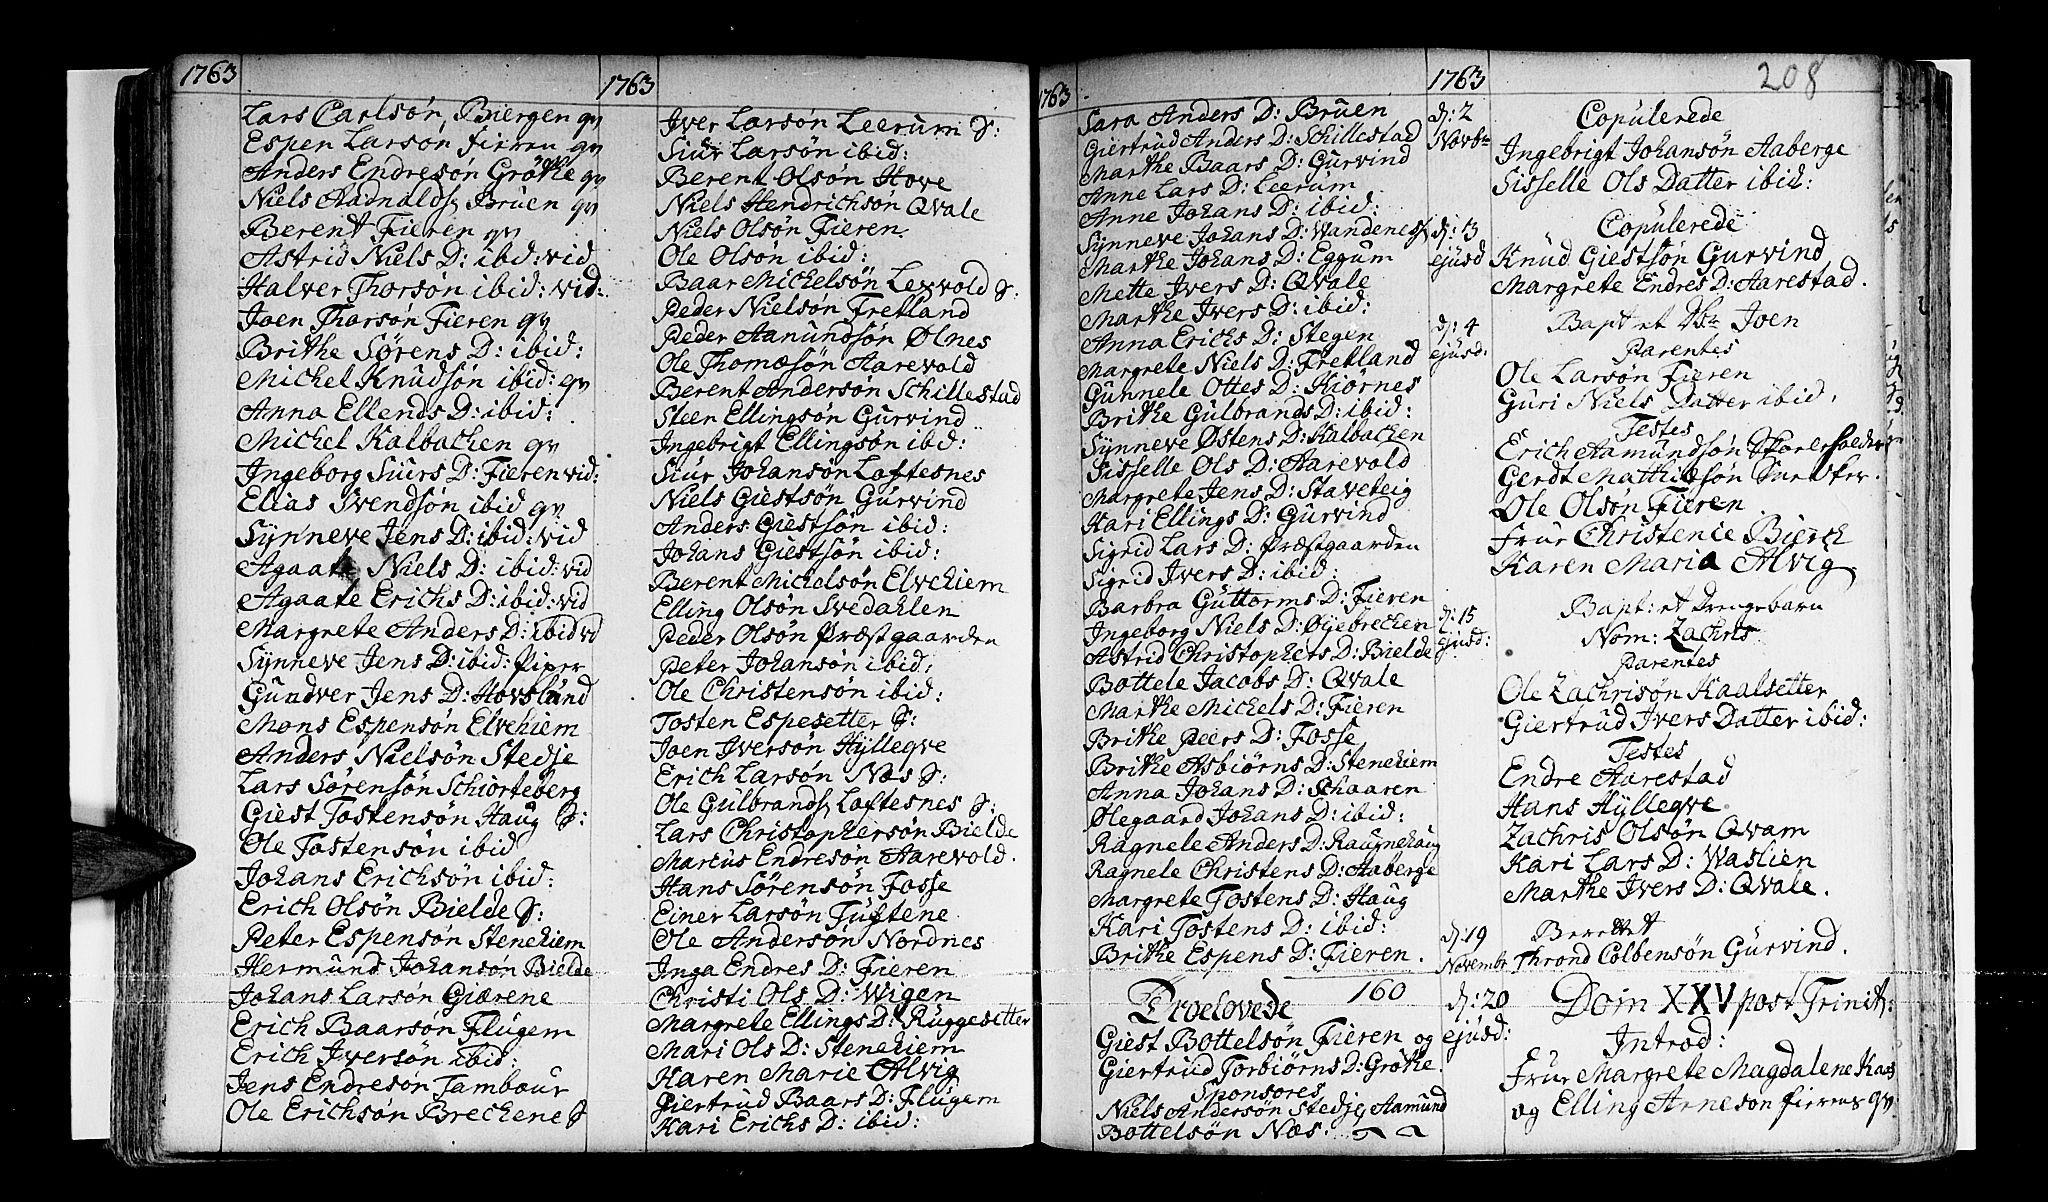 1763
Lars Carlsøn, Biergen qv
Espen Larsøn Fieren qv
Anders Endresøn Grøthe qv
Niels Aadnalds Bruen qv
Berent Fieren qv
Astrid Niels D: ibid: vid
Halver Thorsøn ibid: vid:
Joen Thorsøn Fieren qv
Brithe Sørens D: ibid:
Michel Knudsøn ibid: qv
Anna Ellends D: ibid:
Michel Kalbachen qv
Ingeborg Siurs D: Fieren vid:
Elias Svendsøn ibid qv
Synneve Jens D: ibid: vid
Agaate Niels D: ibid: vid
Agaate Erichs D: ibid: vid
Margrete Anders D: ibid vid
Synneve Jens D: ibid: Piper
Gundver Jens D: Hovslund
Mons Espensøn Elvehiem
Anders Nielsøn Stedje
Lars Sørensøn Schiorteberg
Giest Tostensøn Haug S:
Ole Tostensøn ibid
Johans Erichsøn ibid:
Erich Olsøn Bielde S:
Peter Espensøn Stenehiem
Hermund Johansøn Bielde
Johans Larsøn Giærene
Erich Baarsøn Flugem
Erich Iversøn ibid:
Jens Endresøn Tambour
Ole Erichsøn Brechene S
1763
Iver Larsøn Leerum S:
Siur Larsøn ibid:
Berent Olsøn Hove
Niels Hendrichsøn Qvale
Niels Olsøn Fieren
Ole Olsøn ibid:
Baar Michelsøn Levvold S:
Peder Nielsøn Fretland
Peder Aamundsøn Ølnes
Ole Thomæsøn Aarevold
Berent Andersøn Schillestad
Steen Ellingsøn Gurvind
Ingebrigt Ellingsøn ibid:
Siur Johansøn Loftesnes
Niels Giestsøn Gurvind
Anders Giestsøn ibid:
Johans Giestsøn ibid:
Berent Michelsøn Elvehiem
Elling Olsøn Svedahlen
Peder Olsøn Præstgaarden
Peter Johansøn ibid:
Ole Christensøn ibid:
Tosten Espesetter S:
Joen Iversøn Hyllegve
Erich Larsøn Næs S:
Ole Gulbrands Loftesnes S:
Lars Christophersøn Bielde
Marcus Endresøn Aarevold.
Hans Sørensøn Fosse
Einer Larsøn Tuftene
Ole Andersøn Nordnes
Inga Endres D: Fieren
Christi Ols D: Wigen
Margrete Ellings D: Ruggesetter
Mari Ols D: Stenehiem
Karen Marie Alvig
Giertrud Baars D: Flugem
Kari Erichs D: ibid:
1763
Sara Anders D: Bruen
Giertrud Anders D: Schillestad
Marthe Baars D: Gurvind
Anne Lars D: Leerum
Anne Johans D: ibid:
Synneve Johans D: Wandenes
Marthe Johans D: Eggum
Mette Ivers D: Qvale
Marthe Ivers D: ibid:
Anna Erichs D: Stegen
Margrete Niels D: Fretland
Gunnele Ottes D: Kiørnes
Brithe Gulbrands D: ibid:
Synneve Østens D: Kalbachen
Sisselle Ols D: Aarevold
Margrete Jens D: Staveteig
Kari Ellings D: Gurvind
Sigrid Lars D: Præstgaarden
Sigrid Ivers D: ibid:
Barbra Guttorms D: Fieren
Ingeborg Niels D: Øyebrechen
Astrid Christophers D: Bielde
Bottele Jacobs D: Qvale
Marthe Michels D: Fieren
Brithe Peers D: Fosse
Brithe Asbiørns D: Stenehiem
Anna Johans D: Schaaren
Ølegaard Johans D: ibid:
Ragnele Anders D: Raugnehaug
Ragnele Christens D: Aaberge
Margrete Tostens D: Haug
Kari Tostens D: ibid:
Brithe Espens D: Fieren.
160
Troelovede
Giest Bottelsøn Fieren og
Giertrud Torbiørns D: Grøthe.
Sponsores
Niels Andersøn Stedje, Aamund
Bottelsøn Næs.
1763
208
d: 2 Novbr
Copulerede
Ingebrigt Johansøn Aaberge
Sisselle Ols Datter ibid:
d: 13 ejusd
Copulerede
Knud Giestsøn Gurvind
Margrete Endres D: Aarestad.
d: 4 ejusd:
Bapt et Joen
Parentes
Ole Larsøn Fieren
Guri Niels Datter ibid.
Testes
Erich Aamundsøn
Gerdt Matthiesøn Snedker.
Ole Olsøn Fieren.
Frue Christenie Bierch
Karen Maria Alvig
d: 15 ejusd:
Bapt: et Drengebarn
Nom: Zachris
Parentes
Ole Zachrisøn Kaalsetter
Giertrud Ivers Datter ibid:
Testes
Endre Aarestad
Hans Hyllegve
Zachris Olsøn Qvam
Kari Lars D: Waslien
Marthe Ivers D: Qvale.
d: 19 Novembr
Berettet
Thrond Colbensøn Gurvind.
d: 20 ejusd:
Dom XXV post Trinit:
Introd:
Frue Margrete Magdalene Kaas
og Elling Arnesøn Fierens qv